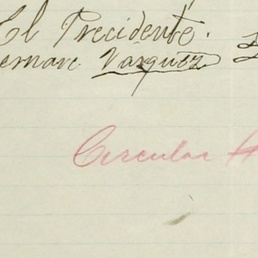 El Presidente.
Vasquez
Circular